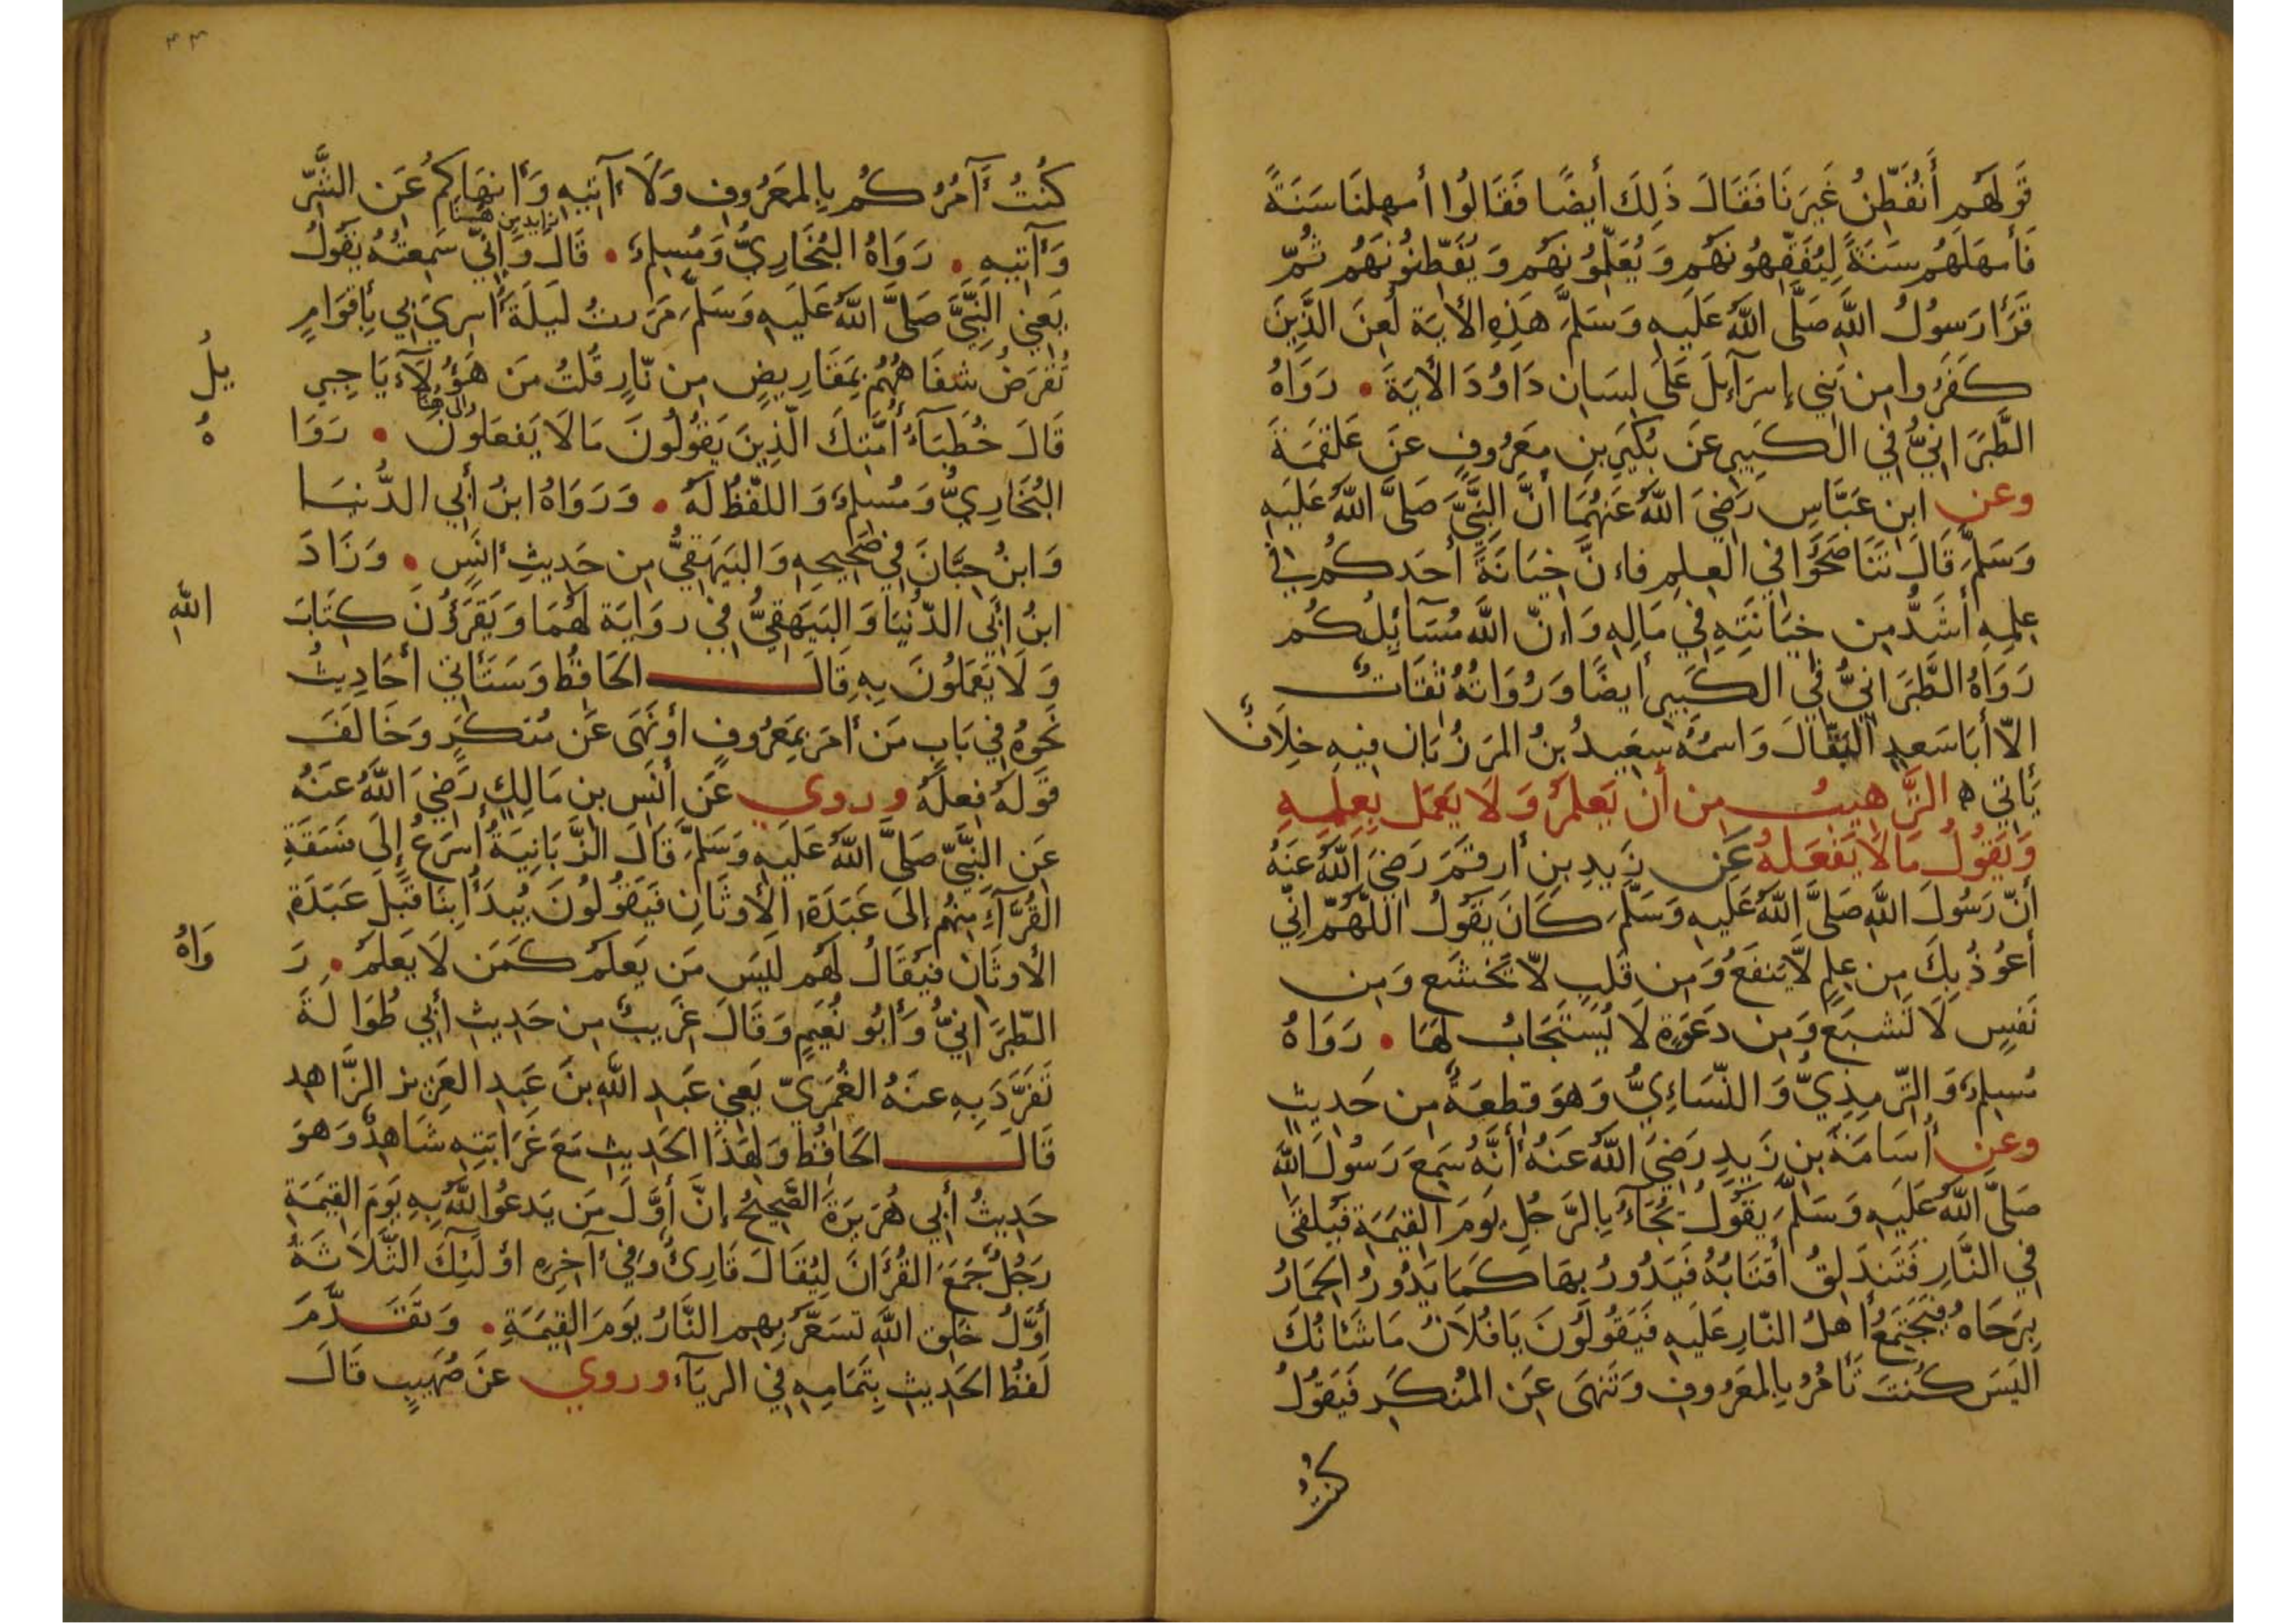 قَولَهُم أَنُفَطِّنُ غَيرَنَا فَقَالَ ذَلِكَ أَيضًا فَقَالُوا أَمهِلنَا سَنَةً
فَأَمهَلَهُم سَنَةً لِيُفَقِّهُونَهُم وَيُعَلِّمُونَهُم وَيُفَطِّنُونَهُم ثُمَّ
قَرَأَ رَسُولُ اللَّهِ صَلَّى اللَّهُ عَلَيهِ وَسَلَّمَ هَذِهِ الأيَة لُعِنَ الَّذِينَ
كَفَرُوا مِن بَنِي إِسرَآءِيلَ عَلَى لِسَانِ دَاوُدَ الأَيَةَ . رَوَاهُ
الطَّبَرَانِيُّ فِي الكَبِيرِ عَن بُكَيرِ بنِ مَعرُوفٍ عَن عَلقَمَةَ
وعن ابنِ عَبَّاسٍ رَضِيَ اللَّهُ عَنهُمَا أَنَّ النَّبِيَّ صَلَّى اللَّهُ عَلَيهِ
وَسَلَّمَ قَالَ تَنَاصَحُوا فِي العِلمِ فَاءِنَّ خِيَانَةَ أَحَدِكُم فِي
عِلمِهِ أَشَدُّ مِن خِيَانَتِهِ فِي مَالِهِ وَإِنَّ اللَّهَ مُسَآئِلُكُم
رَوَاهُ الطَّبَرَانِيُّ فِي الكَبِيرِ أَيضًا وَرُوَاتُهُ ثِقَاتٌ
إِلَّا أَبَا سَعدٍ البَقَّالَ وَاسمُهُ سَعِيدُ بنُ المَرزُبَانِ فِيهِ خِلَافٌ
يَأتِي ه التَّرهِيبُ مِن أَن يَعلَمَ وَلَا يَعمَلَ بِعِلمِهِ
وَيَقُولُ مَالَا يَفعَلُهُ عَن زَيدِ بنِ أَرقَمَ رَضِيَ اللَّهُ عَنهُ
أَنَّ رَسُولَ اللَّهِ صَلَّى اللَّهُ عَلَيهِ وَسَلَّمَ كَانَ يَقُولُ اللَّهُمَّ إِنِّي
أَعُوذُ بِكَ مِن عِلمٍ لَّا يَنفَعُ وَمِن قَلبٍ لَّا يَخشَع وَمِن
نَفسٍ لَا تَشبَع وَمِن دَعوَةٍ لَا يُستَجَابُ لَهَا . رَوَاهُ
مُسلِمٌ وَالتِّرمِذِيُّ وَالنَّسَاءِيُّ وَهوَ قِطعَةٌ مِن حَدِيثٍ
وعن أُسَامَةَ بنِ زَيدٍ رَضِيَ اللَّهُ عَنهُ أَنَّهُ سَمِعَ رَسُولَ اللَّهِ
صَلَّى اللَّهُ عَلَيهِ وَسَلَّمَ يَقُولُ يُجَآءُ بِالرَّجُلِ يَومَ القِيَمَةِ فَيُلقَى
فِي النَّارِ فَتَندَلِقُ أَقتَابُهُ فَيَدُورُ بِهَا كَمَا يَدُورُ الحِمَارُ
بِرَحَاهُ فَيَجتَمِعُ أَهلُ النَّارِ عَلَيهِ فَيَقُولُونَ يَا فُلَانُ مَا شَانُكَ
أَلَيسَ كُنتَ تَأمُرُ بِالمَعرُوفِ وَتَنهَى عَنِ المُنكَرِ فَيَقُولُ
كُنتُ
٤٣
كُنتُ آمُرُكُم بِالمَعرُوفِ وَلَا آتِيهِ وَأَنهَاكُم عَنِ الشَّرِّ
زايد من هنا
وَآتِيهِ . رَوَاهُ البُخَارِيُّ وَمُسلِمٌ . قَالَ وَإِنِّي سَمِعتُهُ يَقُولُ
يَعنِي النَّبِيَّ صَلَّى اللَّهُ عَلَيهِ وَسَلَّمَ مَرَرتُ لَيلَةَ أُسرِيَ بِي بِأَقوَامٍ
تُقرَضُ شِفَاهُهُم بِمَقَارِيضٍ مِن نَّارٍ قُلتُ مَن هَؤُلَآءِ يَا جِبرِ يلُ
الى هنا
قَالَ خُطَبَآءُ أُمَّتِكَ الَّذِينَ يَقُولُونَ مَالَا يَفعَلُونَ . رَوَا هُ
البُخَارِيُّ وَمُسلِمٌ وَاللَّفظُ لَهُ . وَرَوَاهُ ابنُ أَبِي الدُّنيَا
وَابنُ حِبَّانَ فِي صَحِيحِهِ وَالبَيهَقِيُّ مِن حَدِيثِ أَنَسٍ . وَزَادَ
ابنُ أَبِي الدُّنيَا وَالبَيهَقِيُّ فِي رِوَايَة لَهُمَا وَيَقرَؤُنَ كِتَابَ اللَّهِ
وَلَا يَعمَلُونَ بِهِ قَالَ الحَافِظُ وَسَتَأتِي أَحَادِيثُ
نَحوُهُ فِي بَابِ مَن أَمَرَ بِمَعرُوفٍ أَو نَهَى عَن مُنكَرٍ وَخَالَفَ
قَولُهُ فِعلَهُ وروي عَن أَنَسِ بنِ مَالِكٍ رَضِيَ اللَّهُ عَنهُ
عَنِ النَّبِيِّ صَلَّى اللَّهُ عَلَيهِ وَسَلَّمَ قَالَ الزَّبَانِيَةُ أَسرَعُ إِلَى فَسَقَةِ
القُرَّآءِ مِنهُم إِلَى عَبَدَةِ الأَوثَانِ فَيَقُولُونَ يُبدَأُ بِنَا قَبلَ عَبَدَةِ
الأَوثَانِ فَيُقَالُ لَهُم لَيسَ مَن يَعلَمُ كَمَن لَا يَعلَمُ . رَ وَاهُ
الطَّبَرَانِيُّ وَأَبُو نُعَيمٍ وَقَالَ غَرِيبٌ مِن حَدِيثِ أَبِي طُوَالَةَ
تَفَرَّدَ بِهِ عَنهُ العُمَرِيّ يَعنِي عَبدَ اللَّهِ بنَ عَبدِ العَزِيز الزَّاهِد
قَالَ الحَافِظُ وَلِهَذَا الحَدِيثِ مَعَ غَرَابَتِهِ شَاهِدٌ وَهوَ
حَدِيثُ أَبِي هُرَيرَةَ الصَّحِيحُ إِنَّ أَوَّلَ مَن يَدعُو اللَّهُ بِهِ يَومَ القِيَمَةِ
رَجُلٌ جَمَعَ القُرآنَ لِيُقَالَ قَارِئٌ وَفِي آخِرِهِ أُولَئِكَ الثَّلَاثَةُ
أَوَّلُ خَلقِ اللَّهِ تُسَعَّرُ بِهِم النَّارُ يَومَ القِيَمَةِ . وَتَقَدَّمَ
لَفظُ الحَدِيثِ بِتَمَامِهِ فِي الرِيَآءِ وروي عَن صُهَيبٍ قَالَ